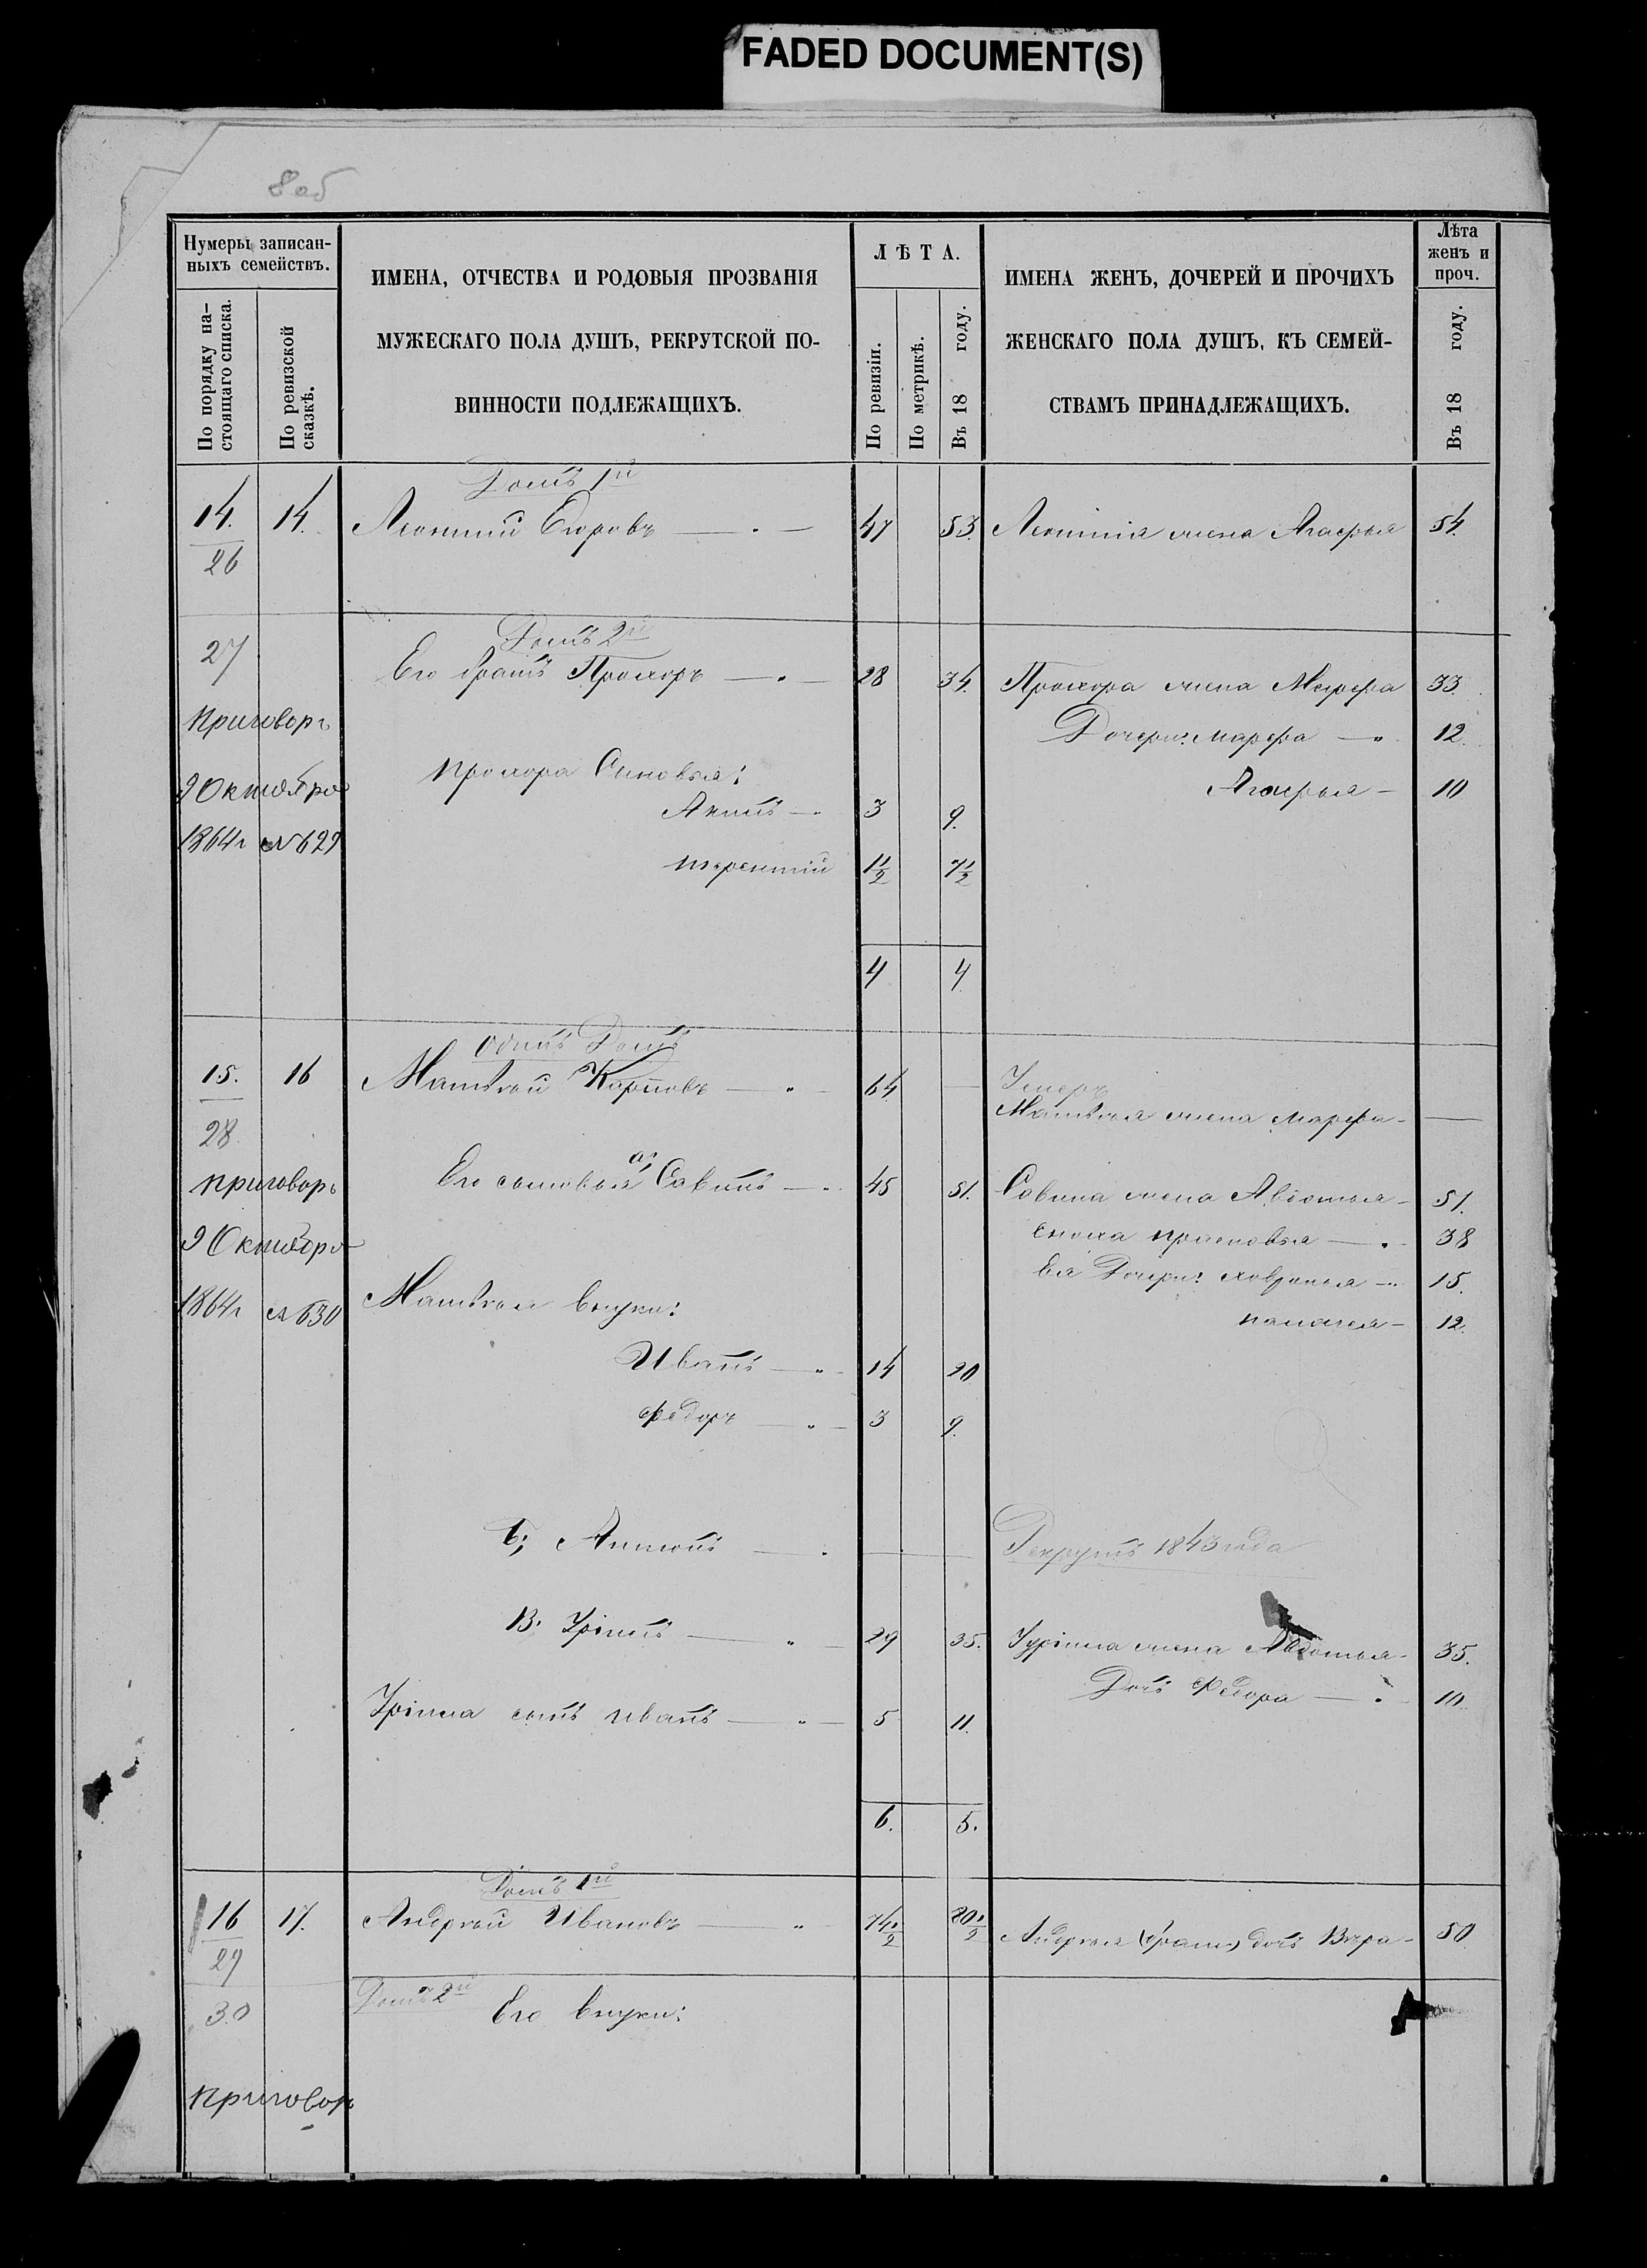 FADED DOCUMENT(S)
8 об
Нумеры записан-
ныхъ семействъ.
По порядку на-
стоящаго списка.
По ревизской
сказкѣ.
ИМЕНА, ОТЧЕСТВА И РОДОВЫЯ ПРОЗВАНІЯ
МУЖЕСКАГО ПОЛА ДУШЪ, РЕКРУТСКОЙ ПО-
ВИННОСТИ ПОДЛЕЖАЩИХЪ.
ЛѢТА.
По ревизіи.
По метрикѣ.
Въ 18 году.
ИМЕНА ЖЕНЪ, ДОЧЕРЕЙ И ПРОЧИХЪ
ЖЕНСКАГО ПОЛА ДУШЪ, КЪ СЕМЕЙ-
СТВАМЪ ПРИНАДЛЕЖАЩИХЪ.
Лѣта
женъ и
проч.
Въ 18 году.
Домъ 1й
14. 14. Леонтий Егоровъ 47 53. Леонтия жена Агафья 54.
26
Домъ 2й
27 Его братъ Прохоръ 28 34. Прохора жена Марфа 33.
Приговоръ
Дочери: марфа 12.
9 Октября прохора Сыновья: Агафья 10
Акимъ 3 9.
1864г №629
терентий 1½ 7½
4 4
Одинъ Домъ
15. 16 Матвѣй Карповъ 64
28
Матвѣя жена марфа
приговоръ Его сыновья а, Савинъ 45 51. Савина жена Авдотья 51.
9 Октября сноха прасковья 38
Ея Дочери: 15.
1864г №630 Матвѣя внуки: 12.
Иванъ 14 20
Федоръ 3 9.
б; Антонъ Рекрутъ 1843 года
В. 29 35. жена Авдотья 35.
Дочь Федора 10.
сынъ иванъ 5 11.
6. 5.
Домъ 1й
16 17. Андрей Ивановъ 74½ 80½ Андрея дочь Вѣра 50
29
30 Домъ 2й Его внуки:
приговоръ